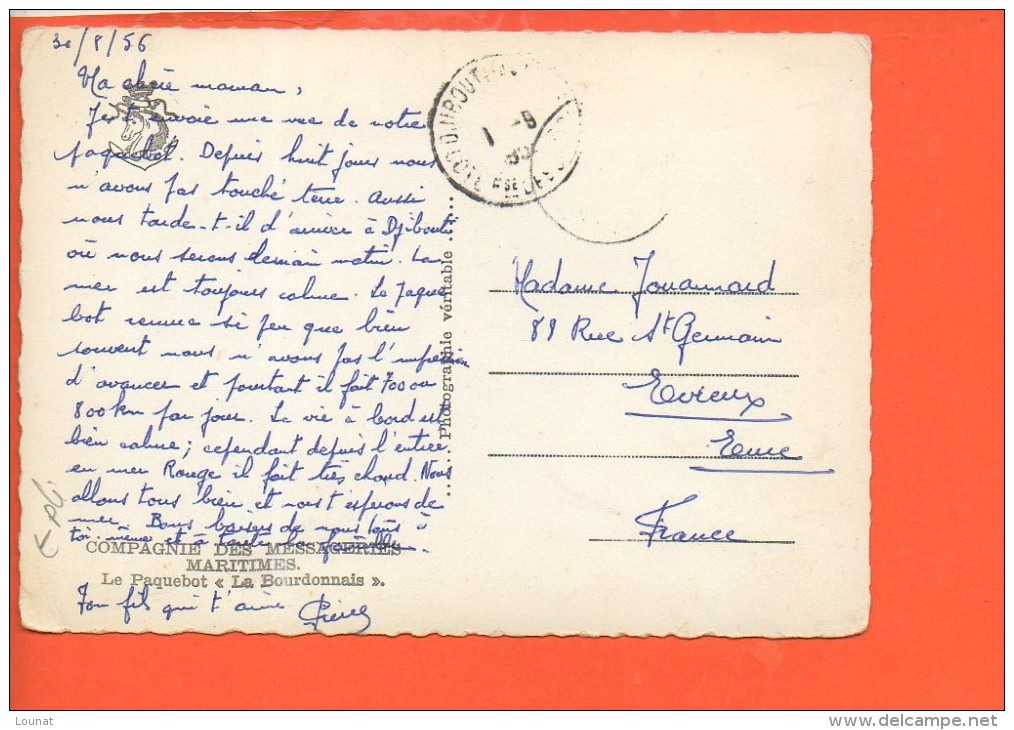 30/8/56
Ma chère maman,
Je t'envoie une vue de notre
paquebot. Depuis huit jours nous
n'avons pas touché terre. Aussi
nous tarde-t-il d'arriver à Djibouti
où nous serons demain matin. La
mer est toujours calme. Le paque
bot remue si peu que bien
souvent nous n'avons pas l'impression
d'avancer et pourtant il fait 700 ou
800 km par jour. La vie à bord est
bien calme; cependant depuis l'entrée
en mer Rouge il fait très chaud. Nous
allons tous bien et
mer. Bons baisers de nous tous à
toi-même et à toute la famille
COMPAGNIE DES MESSAGERIES
MARITIMES.
Le Paquebot « La Bourdonnais ».
Ton fils qui t'aime
Photographie véritable
DJIBOUTI
1 -9
COTE Fse DES S
Madame Jouannard
89 Rue St Germain
Evreux
Eure
France
Lounat
www.delcampe.net